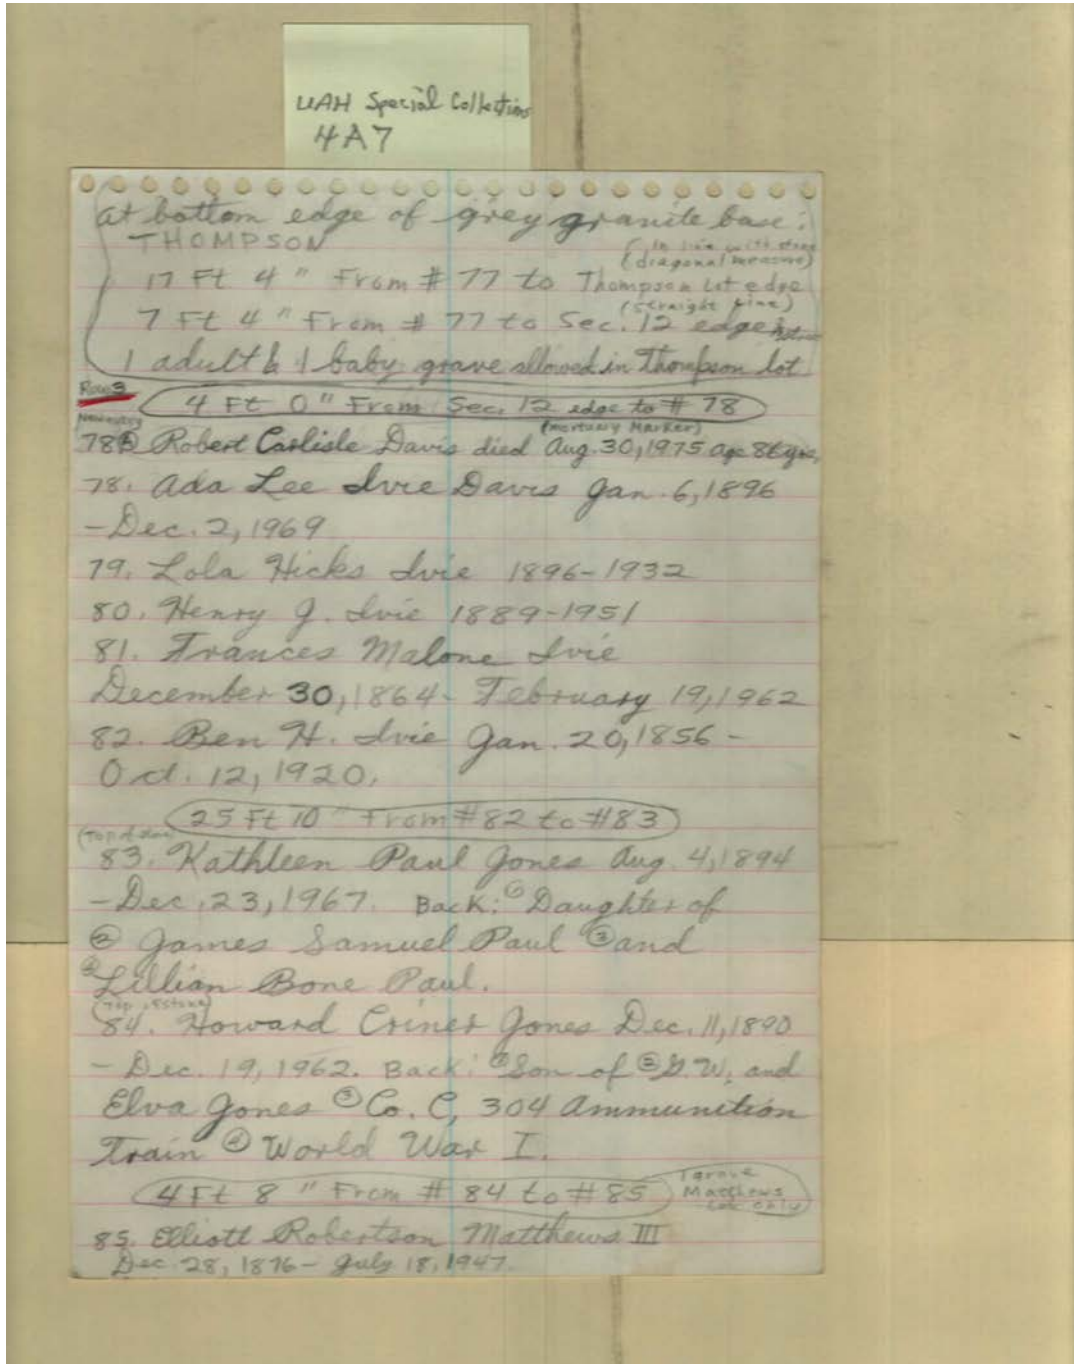 UAH Special Collections
4A7
at bottom edge of grey granite base:
THOMPSON
(In line with stone
(diagonal measure)
17 Ft 4" From # 77 to Thompson Lot edge
(straight line)
7 Ft 4" From # 77 to Sec. 12 edge
1 adult & 1 baby grave allowed in Thompson lot
Row 3
4 Ft 0" From Sec. 12 edge to # 78
(mortuary Marker)
78B Robert Carlisle Davis died Aug. 30, 1975 age yrs.
78. Ada Lee Ivie Davis Jan. 6, 1896
- Dec. 2, 1969
79. Lola Hicks Ivie 1896-1932
80. Henry J. Ivie 1889-1951
81. Frances Malone Ivie
December 30, 1864 - February 19, 1962
82. Ben H. Ivie Jan. 20, 1856 -
Oct. 12, 1920.
25 Ft 10" From #82 to #83
(Top of stone)
83. Kathleen Paul Jones Aug. 4, 1894
- Dec. 23, 1967. Back: ① Daughter of
② James Samuel Paul ③ and
④ Lillian Bone Paul.
(Top of stone)
84. Howard Criner Jones Dec. 11, 1890
- Dec. 19, 1962. Back: ① Son of ② G.W. and
Elva Jones ③ Co. C, 304 Ammunition
Train ④ World War I.
4 Ft 8" From # 84 to # 85
1 grave
Matthews
Lot only
85. Elliott Robertson Matthews III
Dec. 28, 1876 - July 18, 1947.